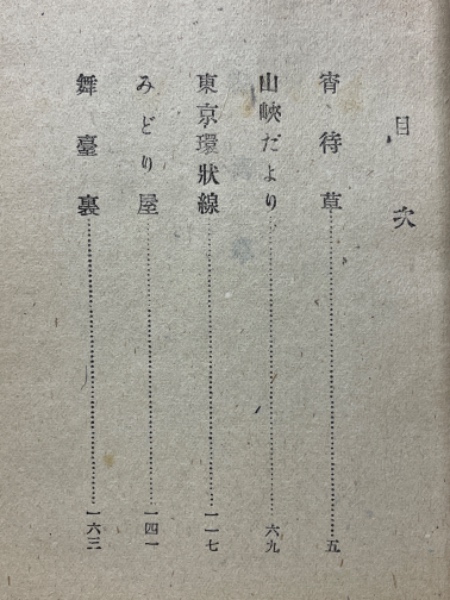 目次
宵待草……五
山峽だより……六九
東京環狀線……一一七
みどり屋……一四一
舞臺裏……一六三